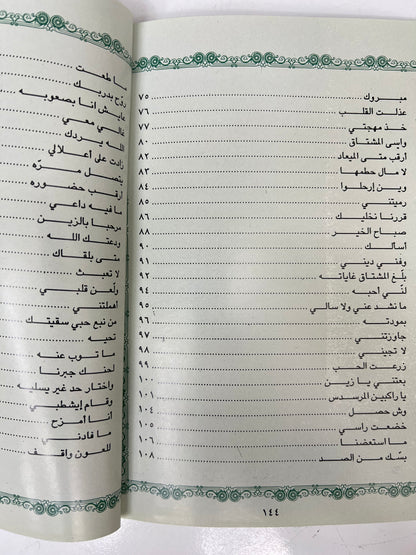 مبروك ٧٥
عذلت القلب ٧٦
خذ مهجتي ٧٧
واسى المشتاق ٨٠
ارقب متى الميعاد ٨٢
لا مال حطمها ٨٣
وين إرحلوا ٨٤
رميتني ٨٥
قررنا نخليك ٨٦
صباح الخير ٨٨
أسألك ٩٠
وفني ديني ٩١
بلغ المشتاق غاياته ٩٢
لنّي أحبه ٩٤
ما نشد عني ولا سالي ٩٥
بمودته ٩٦
جاوزتني ٩٧
لا تجيني ٩٨
زرعت الحب ٩٩
بعتني يا زين ١٠٠
ياراكبين المرسدس ١٠١
وش حصل ١٠٤
خضعت راسي ١٠٥
ما استعضنا ١٠٦
بسّك من الصد ١٠٨
١٤٤
ما طعت
روّح بدربك
عايش انا بصعوبه
غالي معي
الله يردك
زادت على أعلالي
يتصل مرّه
أرقب حضوره
ما فيه داعي
مرحبا بالزين
ودعتك الله
متى بلقاك
لا تعبث
ولّعن قلبي
اهملتني
من نبع حبي سقيتك
تحبه
ما توب عنه
لحنك جبرنا
واختار حد غير يسليه
وقام إيشطبي
أنا أمزح
ما فادني
للعون واقف